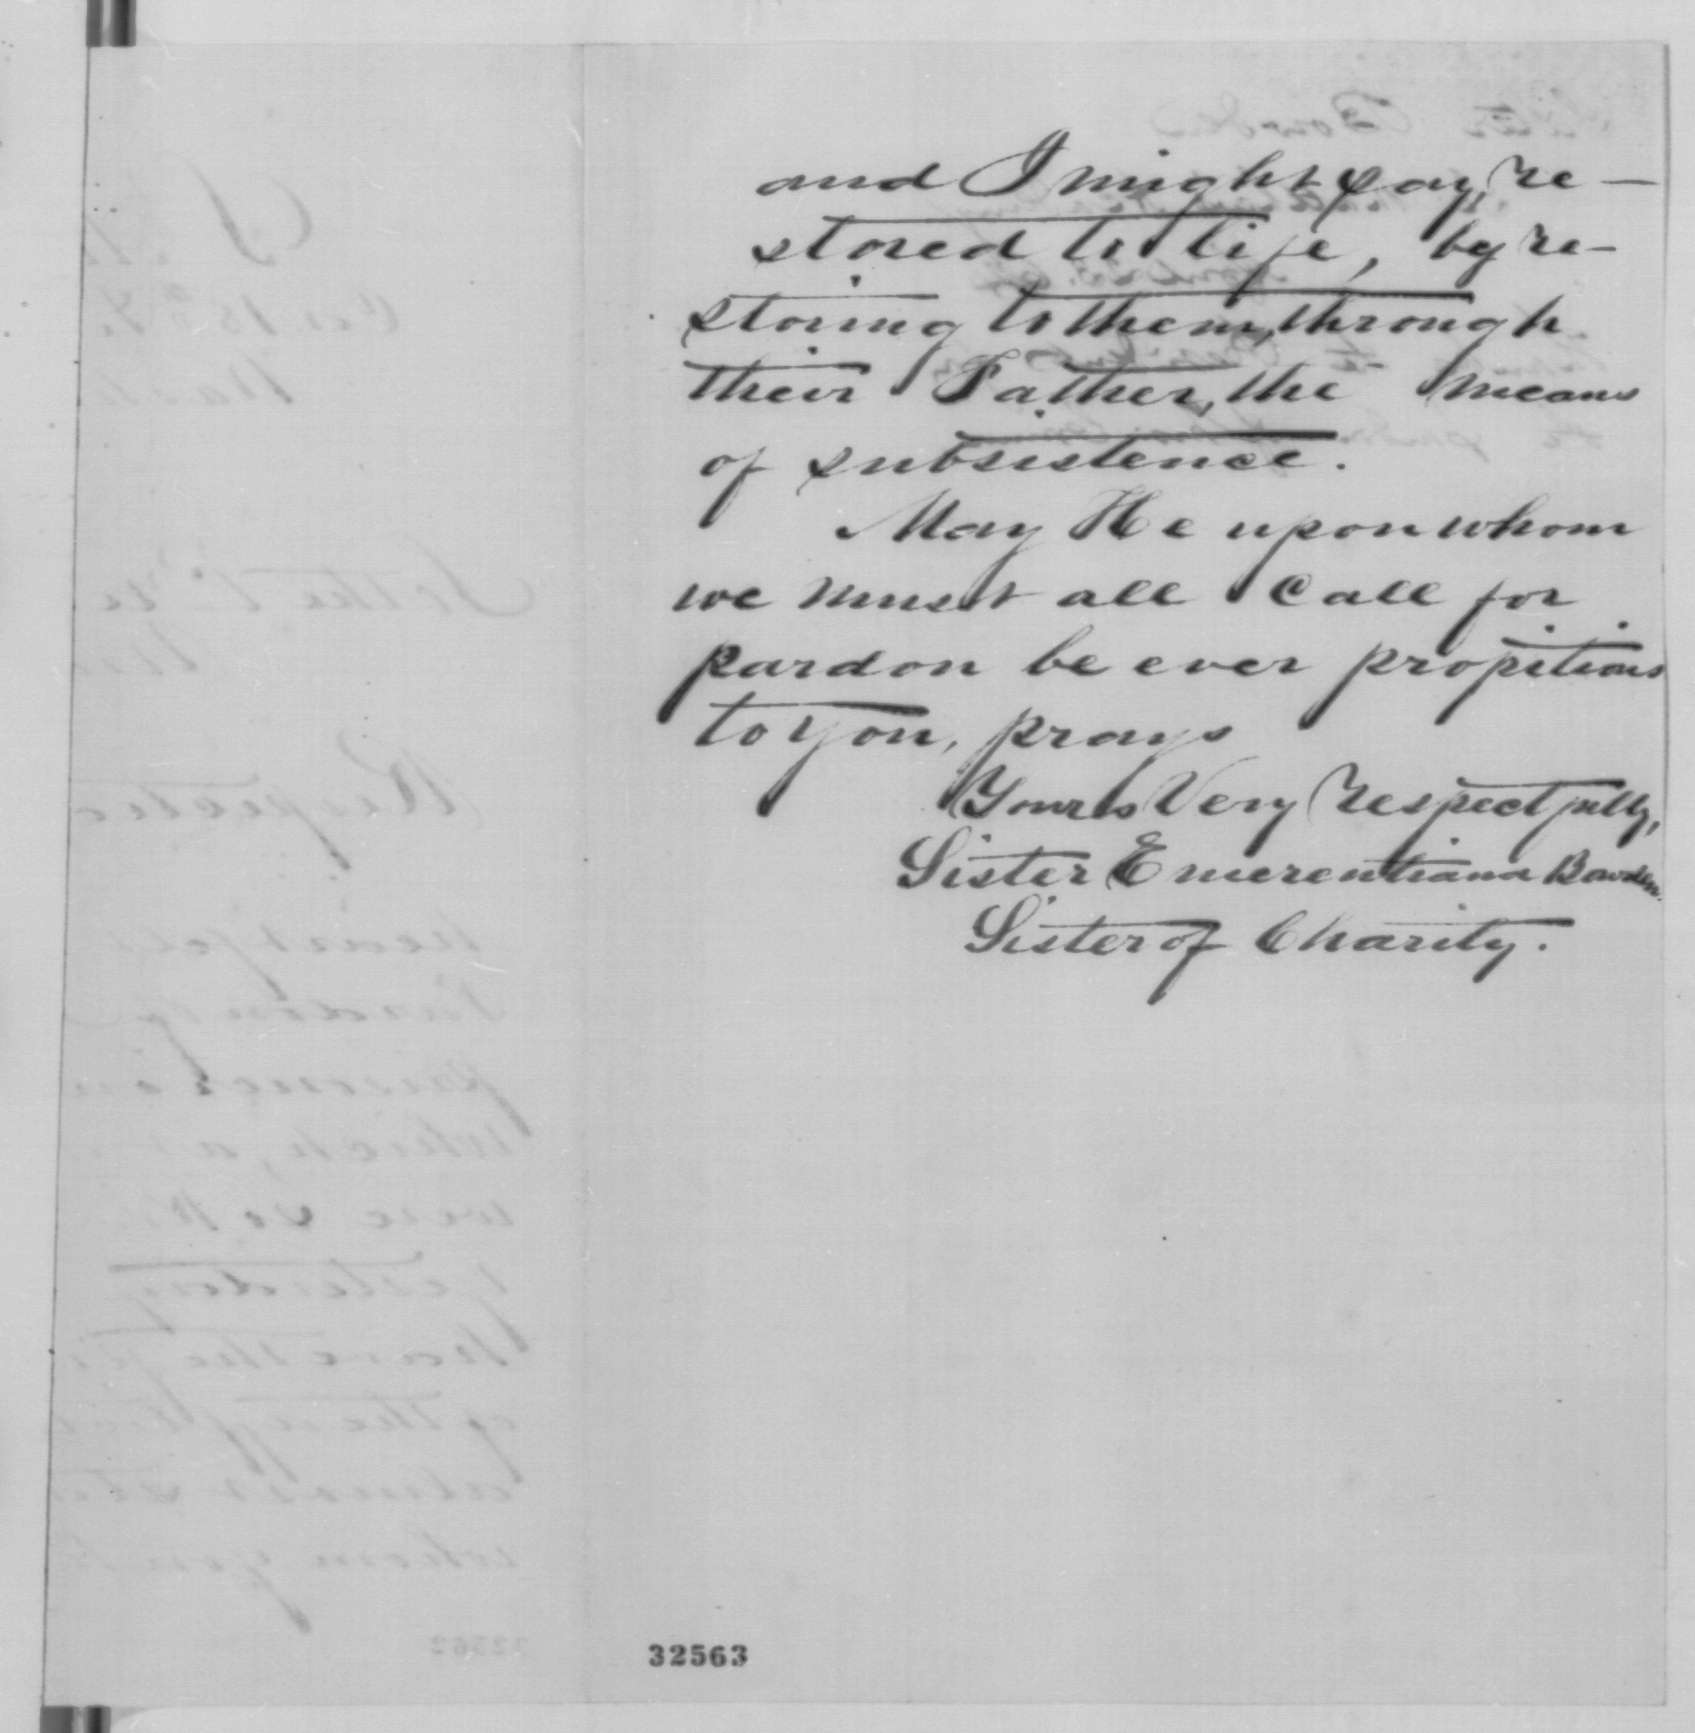 and I might say, re-
stored to life, by re-
storing to them, through
their Father, the means
of subsistence.
May He upon whom
we must all call for
pardon be ever propitious
to you, prays
Yours Very respectfully,
Sister Emerentiana Bowden.
Sister of Charity.
32563